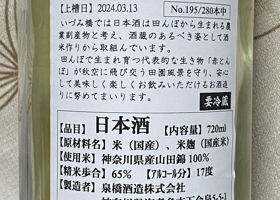 【上槽日】2024.03.13
No.195/280本中
いづみ橋では日本酒は田んぼから生まれる農
業副産物と考え、酒蔵のあるべき姿として酒
米作りから取組んでいます。
田んぼで生まれ育つ代表的な生き物「赤とん
ぼ」が秋空に飛び交う田園風景を守り、安心
して美味しく楽しくお飲みいただけるお酒造
りに努めています。
要冷蔵
【品目】日本酒 【内容量】720ml
【原材料名】米（国産）、米麹（国産米）
【使用米】神奈川県産山田錦100%
【精米歩合】65% 【アルコール分】17度
【製造者】泉橋造株式会社